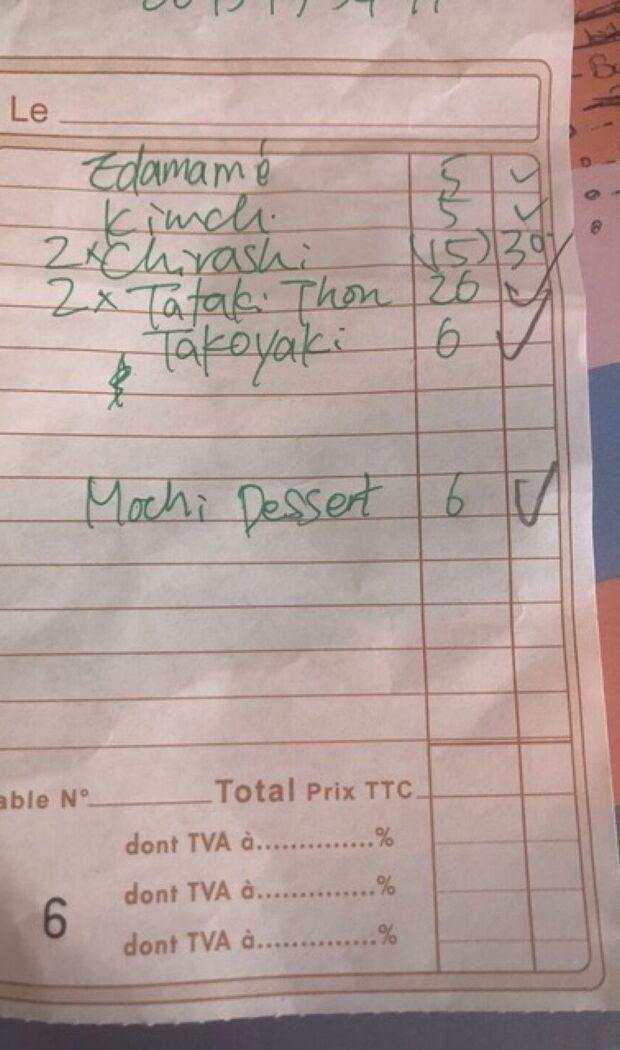 Le
Edamamé 5 ✓
Kimchi 5 ✓
2x Chirashi (15) 30
2x Tataki Thon 26 ✓
Takoyaki 6 ✓
Mochi Dessert 6 ✓
able N° Total Prix TTC
dont TVA à..............%
dont TVA à..............%
6
dont TVA à..............%